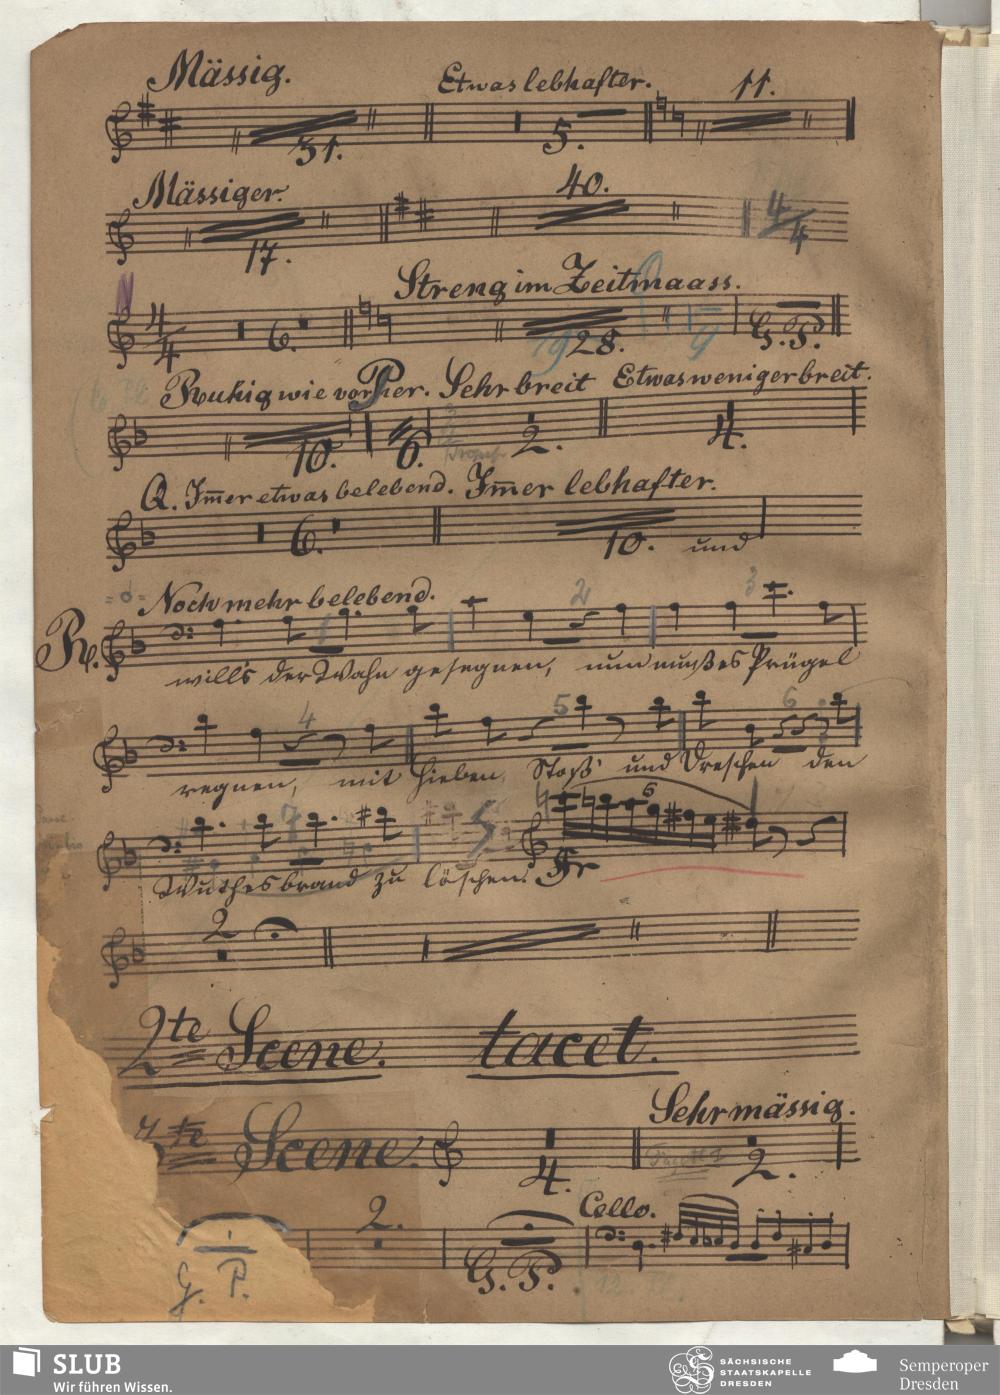 Mässig. Etwas lebhafter. 11.
31. 5.
Mässiger. 40.
17. 4/4
Streng im Zeitmaass.
4/4 6. 19 28. G. P.
Ruhig wie vorher. Sehr breit Etwas weniger breit.
10. 6. 2. 4.
Q. Im̅er etwas belebend. Im̅er lebhafter.
6. 10. und
Noch mehr belebend. 2 3
R. 1
will's der Wahn gesegnen, nun muß es Prügel
4 5 6
regnen, mit Hieben, Stoß' und Dreschen den
7 6
Wuthesbrand zu löschen.
2
2te Scene. tacet.
Sehr mässig.
te Scene. 4. 2.
2. Cello.
G. P. G. P.
SLUB
Wir führen Wissen.
SÄCHSISCHE
STAATSKAPELLE
DRESDEN
Semperoper
Dresden